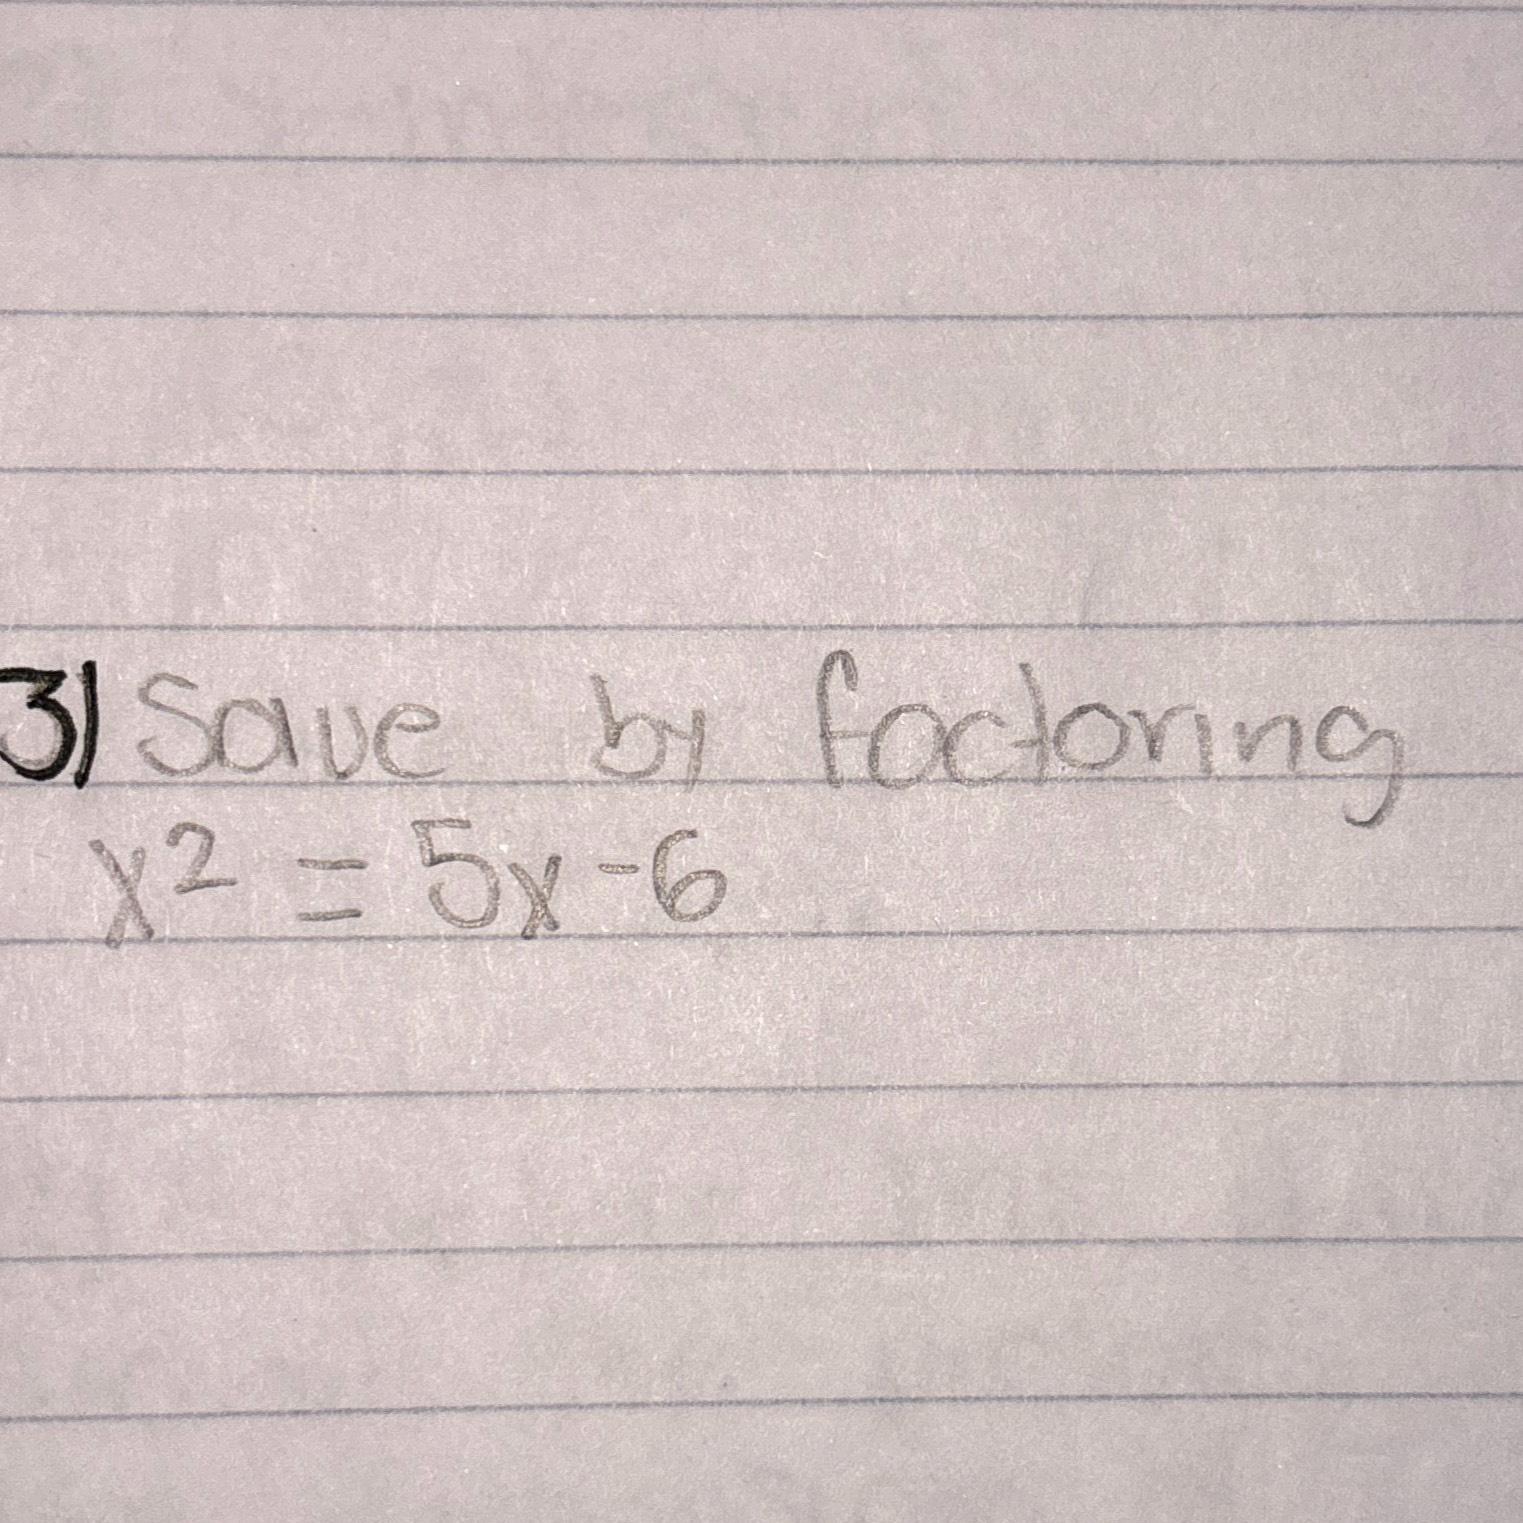 3) Solve by factoring
x² = 5x - 6